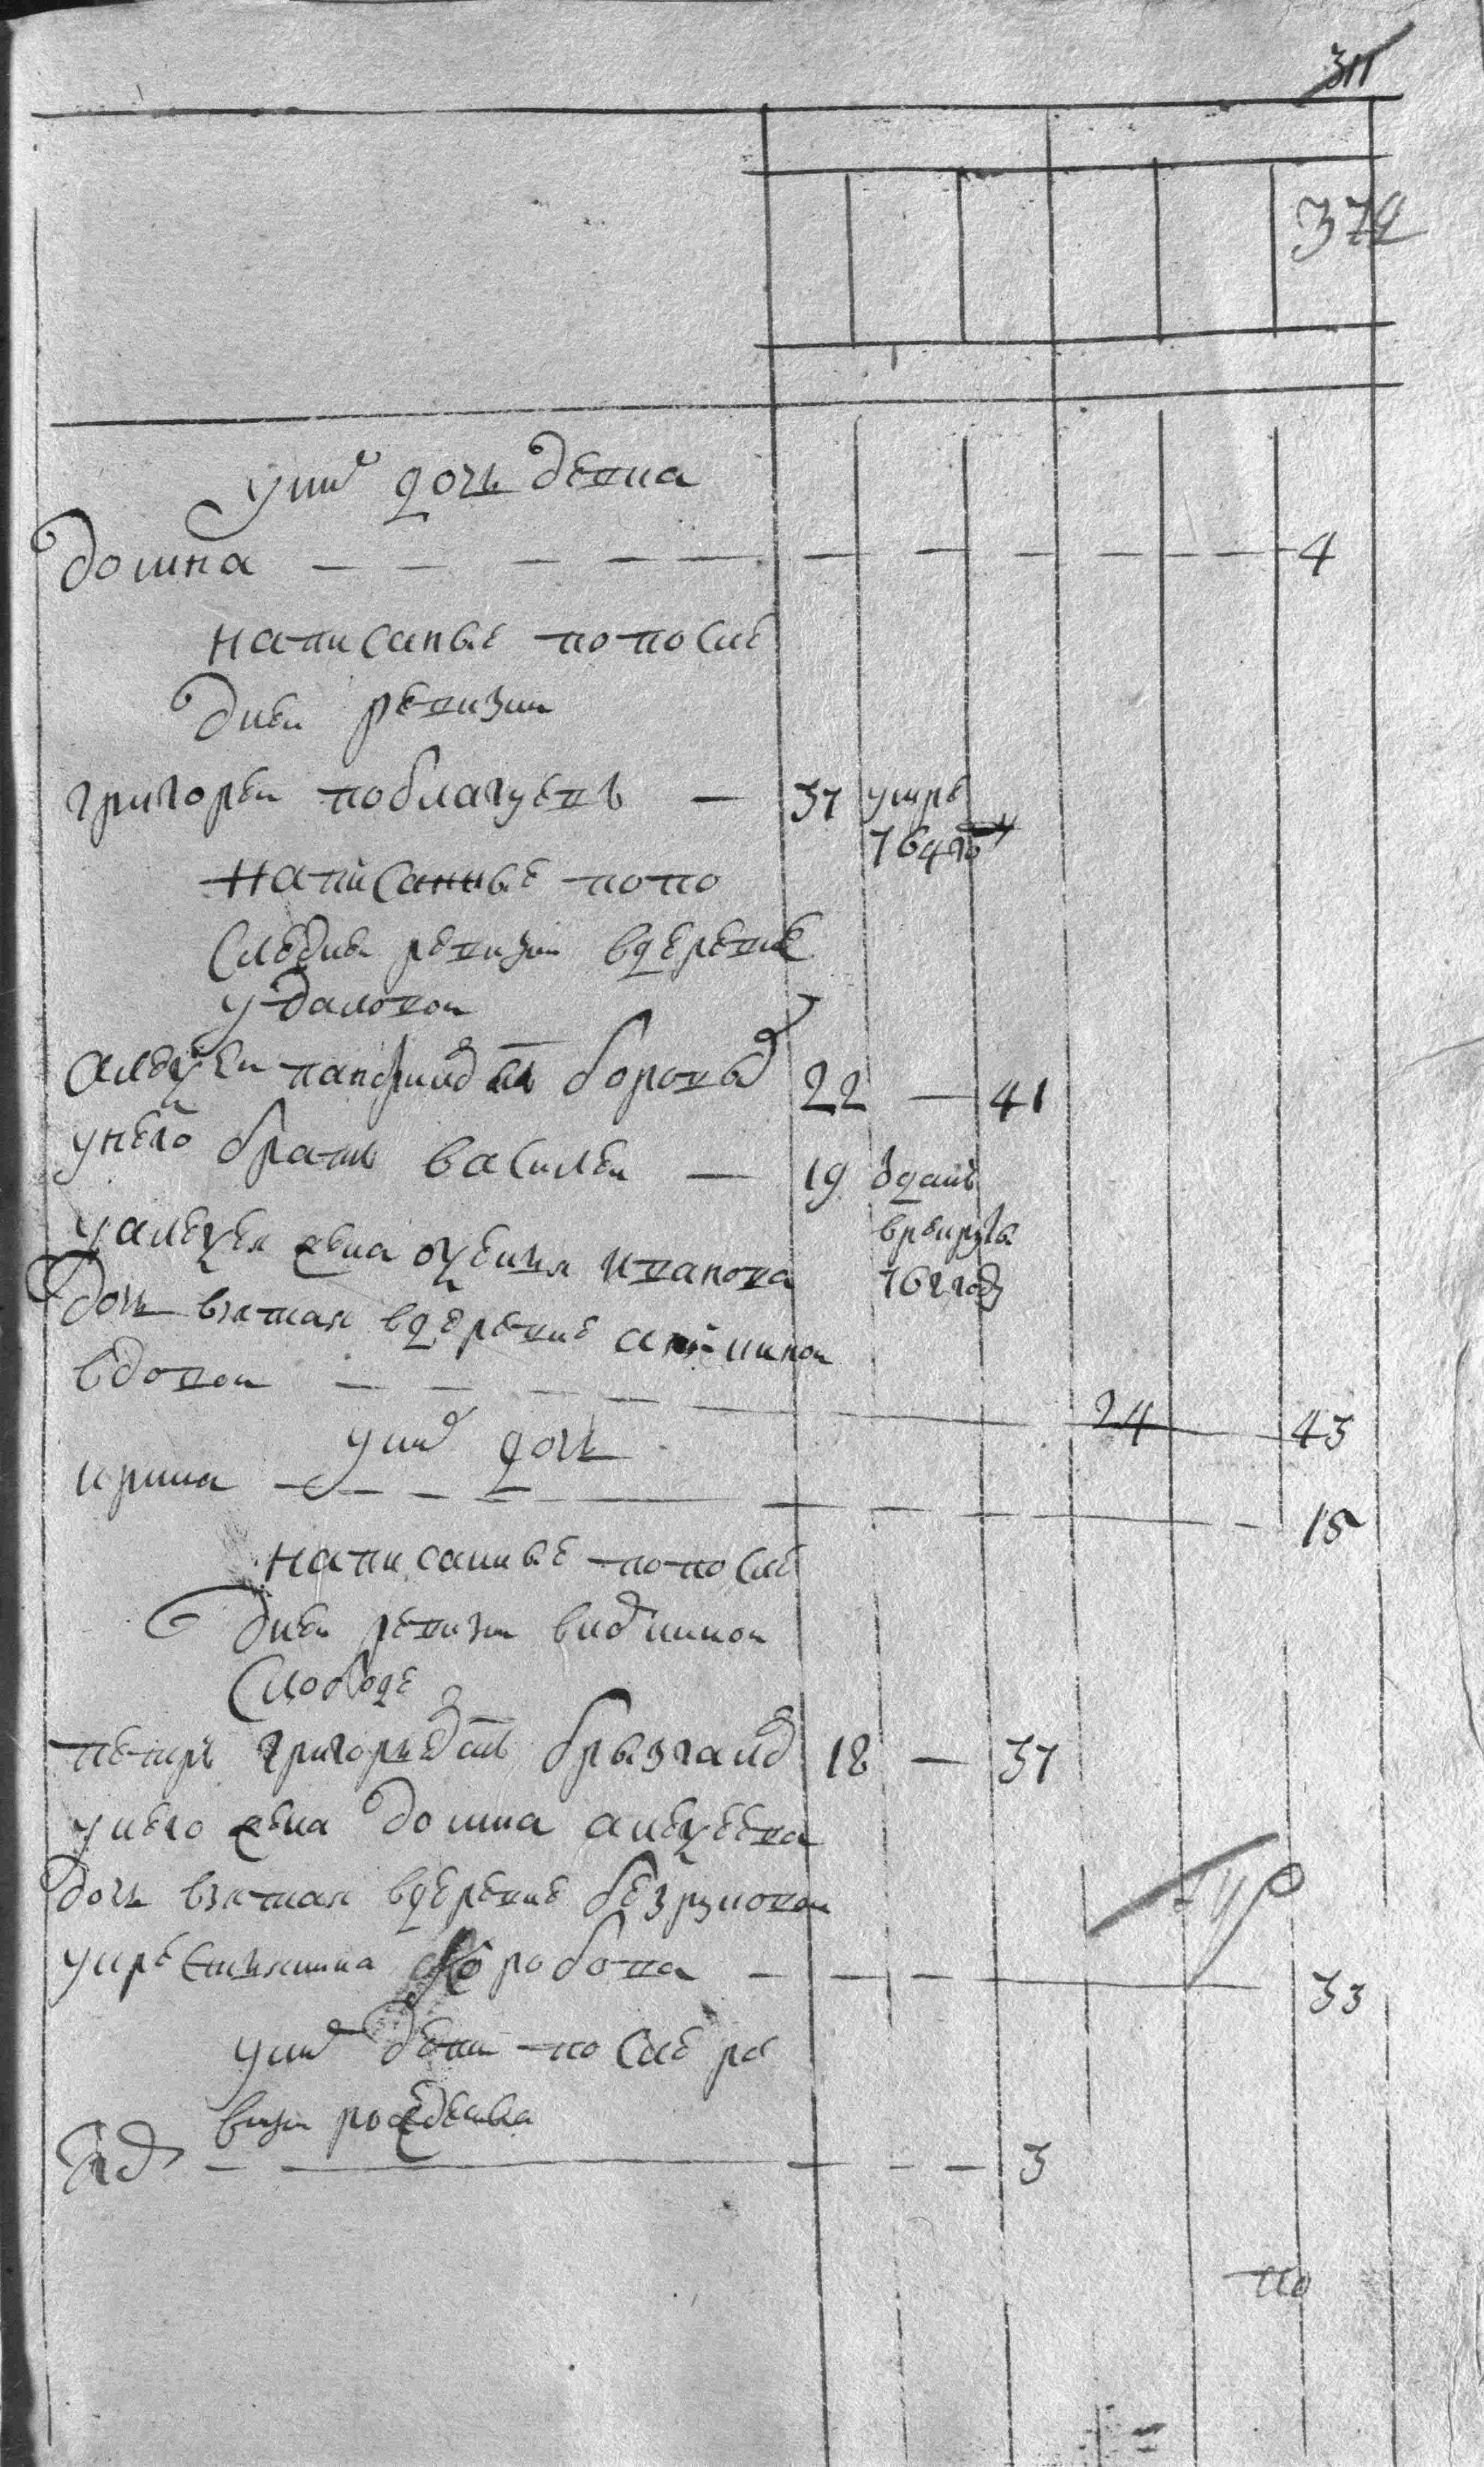 311
372
у них дочь девка
домна — — — — — — — — — 4
написаные по после
дней ревизии
григорей поблагуевъ — 37 умре
764 го
написанные по по
следней ревизии вдеревне
удаловой
алексей панфиловъ снъ боровъ 22 — 41
унего братъ василей — 19 зданъ
врекруты
762 году
уалексея жена офимья иванова
дочь взятая вдеревне
вдовой — — — 24 — 43
у них дочь
ирина — — — — — — 15
написанные по после
дней ревизии
слободе
петръ григорьевъ снъ брызгаловъ 18 — 37
унего жена домна алексеева
дочь взятая вдеревне безруковой
укрестьянина коробова — — — 33
у них дети после ре
визии рожденные
— — — — 3
по